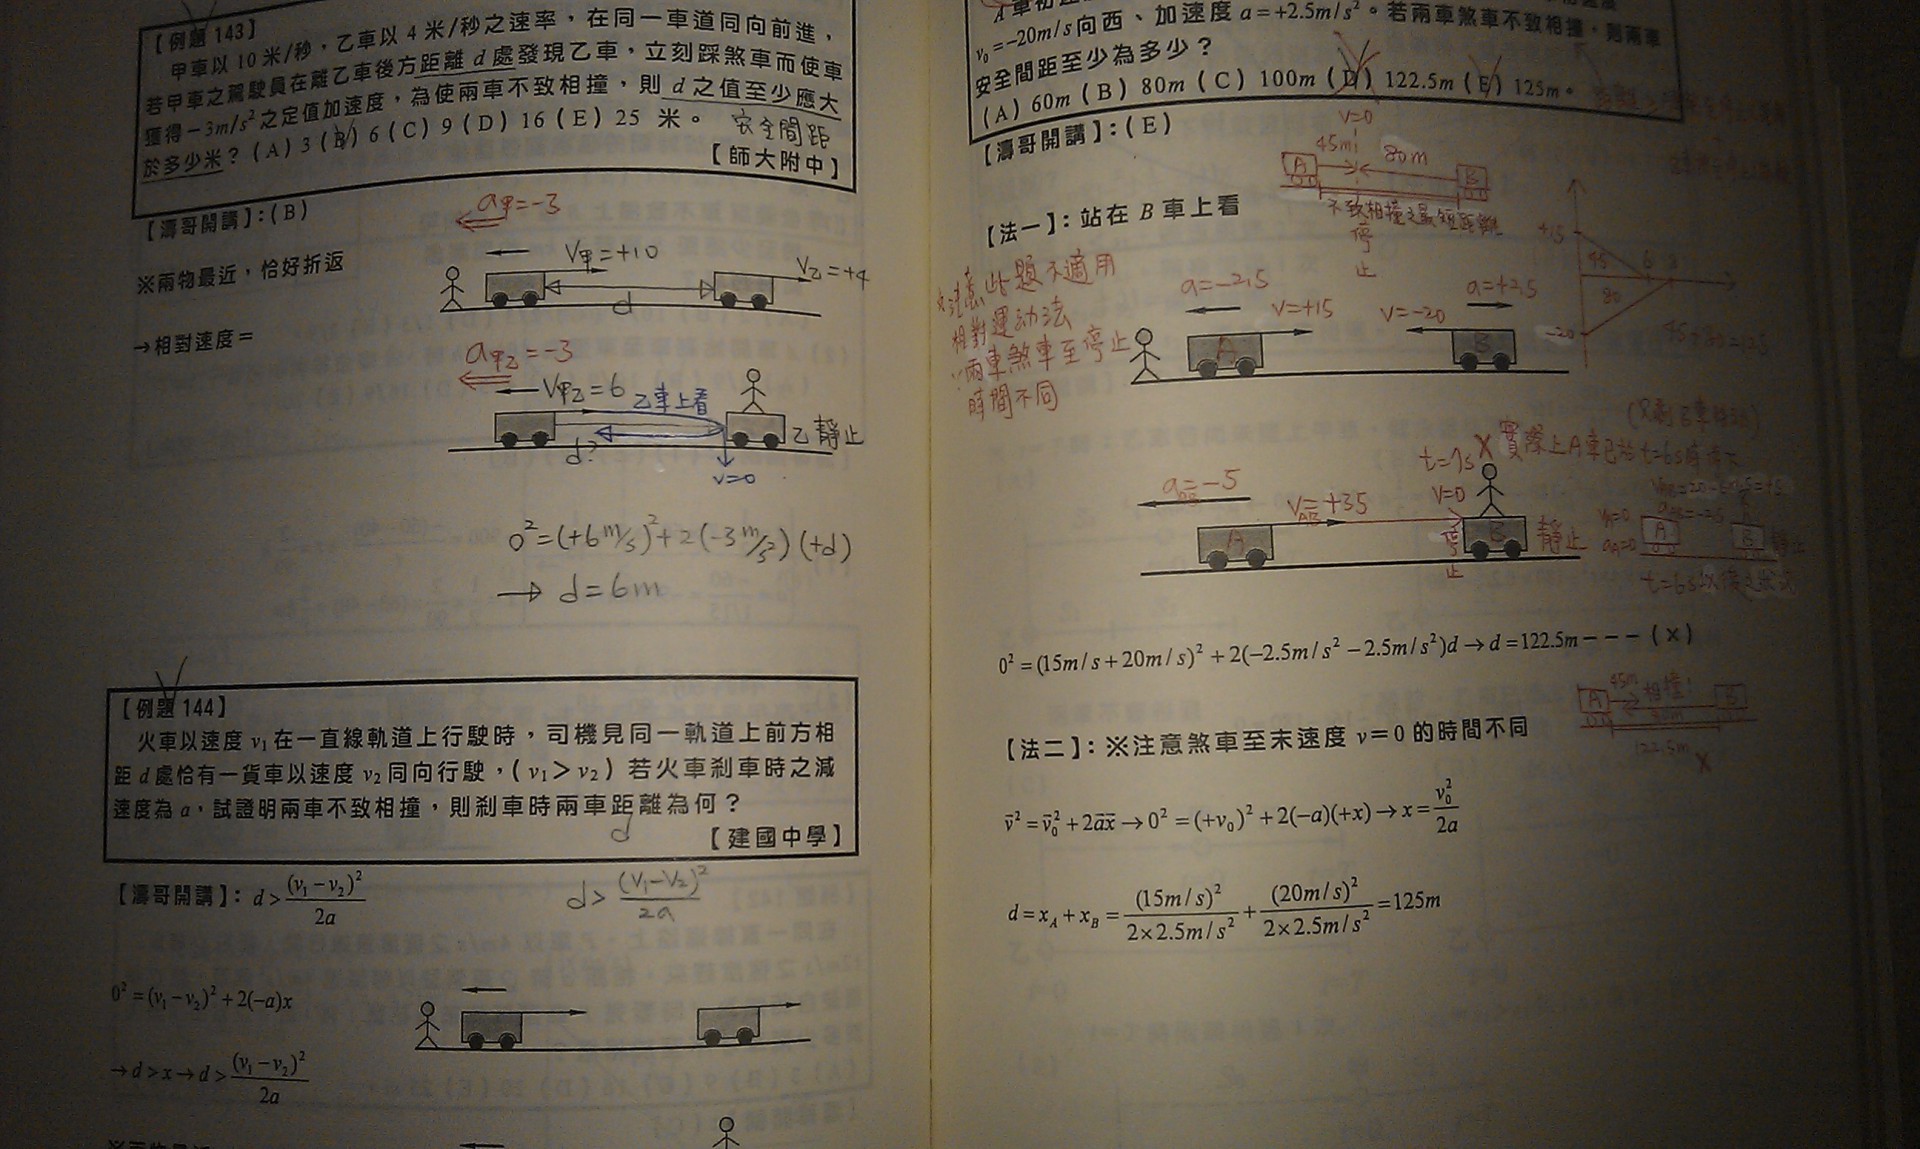 【例題 143】
甲車以 10 米/秒，乙車以 4 米/秒之速率，在同一車道同向前進，
若甲車之駕駛員在離乙車後方距離 d 處發現乙車，立刻踩煞車而使車
獲得 -3m/s² 之定值加速度，為使兩車不致相撞，則 d 之值至少應大
於多少米？(A) 3 (B) 6 (C) 9 (D) 16 (E) 25 米。 安全間距
【師大附中】
【濤哥開講】：(B)
※兩物最近，恰好折返
→相對速度＝
a甲=-3
V甲=+10
V乙=+4
d
a甲乙=-3
V甲乙=6
乙車上看
乙 靜止
d?
v=0
0²=(+6m/s)²+2(-3m/s²)(+d)
→ d=6m
【例題 144】
火車以速度 v₁ 在一直線軌道上行駛時，司機見同一軌道上前方相
距 d 處恰有一貨車以速度 v₂ 同向行駛，(v₁＞v₂) 若火車剎車時之減
速度為 a，試證明兩車不致相撞，則剎車時兩車距離為何？
d
【建國中學】
【濤哥開講】：d>(v₁-v₂)²/2a
d>(V₁-V₂)²/2a
0²=(v₁-v₂)²+2(-a)x
→d>x→d>(v₁-v₂)²/2a
v₀=-20m/s 向西、加速度 a=+2.5m/s²。若兩車煞車不致相撞，則兩車
安全間距至少為多少？
(A) 60m (B) 80m (C) 100m (D) 122.5m (E) 125m。
【濤哥開講】：(E)
v=0
45m
80m
A
B
不致相撞之最短距離
停
止
【法一】：站在 B 車上看
+15
45
6
8
80
-20
45+80=125
注意 此題不適用
相對運動法
∵兩車煞車至停止
時間不同
a=-2.5
v=+15
v=-20
a=+2.5
A
B
t=7s X 實際上A車已於t=6s時停下
aAB=-5
vAB=+35
v=0
停
止
A
B
靜止
vA=0
aA=0
A
B
靜止
t=6s以後之狀況
0²=(15m/s+20m/s)²+2(-2.5m/s²-2.5m/s²)d→d=122.5m---(×)
45m
A
相撞!
B
80m
122.5m X
【法二】：※注意煞車至末速度 v=0 的時間不同
v̄²=v̄₀²+2āx̄→0²=(+v₀)²+2(-a)(+x)→x=v₀²/2a
d=xA+xB=(15m/s)²/2×2.5m/s²+(20m/s)²/2×2.5m/s²=125m